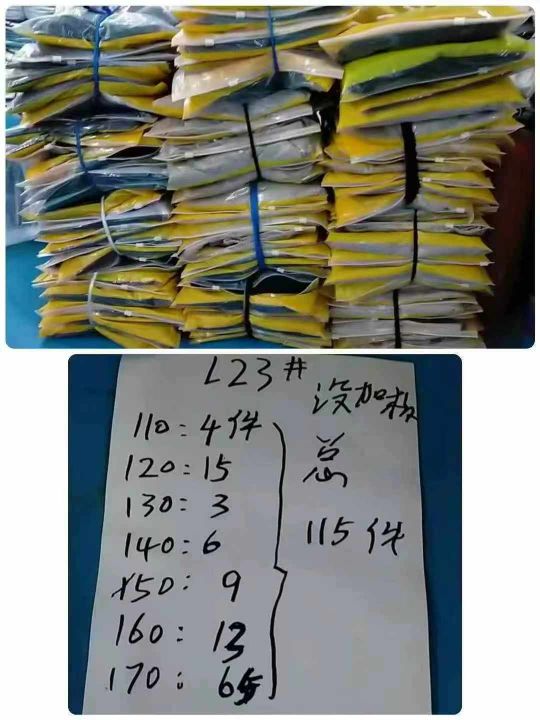 L23#
没加
110:4件
总
120:15
130:3
115件
140:6
150:9
160:13
170:65